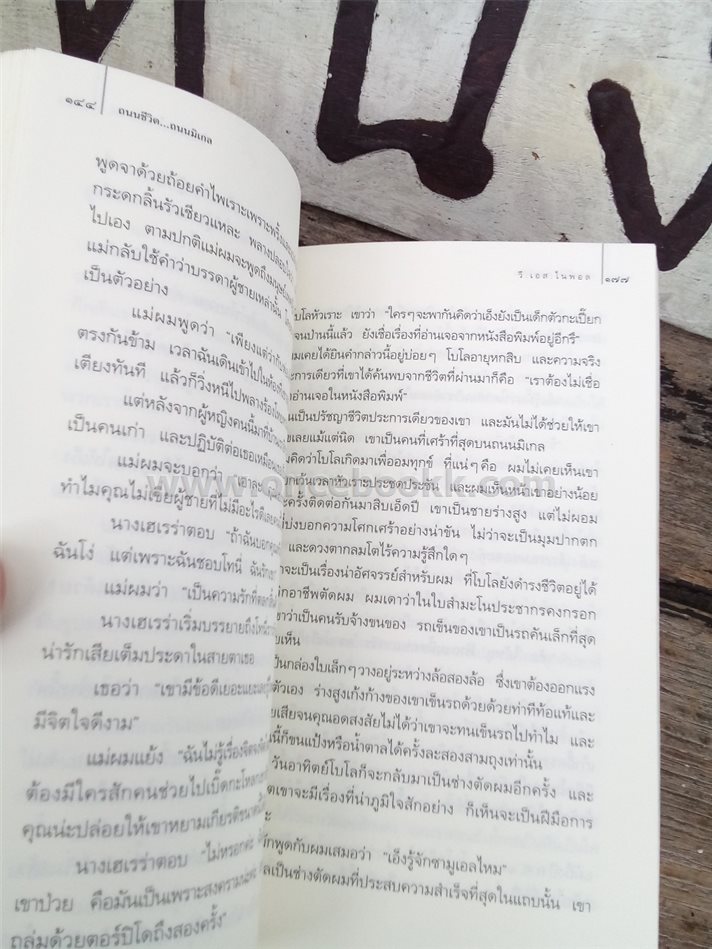 ๑๔๔
ถนนชีวิต...ถนนมิเกล
พูดจาด้วยถ้อยคำไพเราะเพราะพริ้ง
กระดกลิ้นรัวเชียวแหละ พลางปล่อย
ไปเอง ตามปกติแม่ผมจะพูดถึงมนุษย์
แม่กลับใช้คำว่าบรรดาผู้ชายเหล่านั้น
เป็นตัวอย่าง
แม่ผมพูดว่า "เพียงแต่ว่า
ตรงกันข้าม เวลาฉันเดินเข้าไปในห้อง
เตียงทันที แล้วก็วิ่งหนีไปพลางร้อง
แต่หลังจากผู้หญิงคนนี้มาที่บ้าน
เป็นคนเก่า และปฏิบัติต่อเธอเหมือน
แม่ผมจะบอกว่า "เอาละ
ทำไมคุณไม่เขี่ยผู้ชายที่ไม่มีอะไรดีเลย
นางเฮเรร่าตอบ "ถ้าฉันบอกคุณ
ฉันโง่ แต่เพราะฉันชอบโทนี่ ฉันรัก
แม่ผมว่า "เป็นความรักที่
นางเฮเรร่าเริ่มบรรยายถึงโทนี่
น่ารักเสียเต็มประดาในสายตาเธอ
เธอว่า "เขามีข้อดีเยอะแยะ
มีจิตใจดีงาม"
แม่ผมแย้ง "ฉันไม่รู้เรื่องจิตใจ
ต้องมีใครสักคนช่วยไปเบิ๊ดกะโหลก
คุณน่ะปล่อยให้เขาหยามเกียรติขนาด
นางเฮเรร่าตอบ "ไม่หรอกค่ะ
เขาป่วย คือมันเป็นเพราะสงครามน่ะค่ะ
ถล่มด้วยตอร์ปิโดถึงสองครั้ง"
วี เอส ไนพอล
๑๗๗
โบโลหัวเราะ เขาว่า "ใครๆจะพากันคิดว่าเอ็งยังเป็นเด็กตัวกะเปี๊ยก
จนป่านนี้แล้ว ยังเชื่อเรื่องที่อ่านเจอจากหนังสือพิมพ์อยู่อีกรึ"
ผมเคยได้ยินคำกล่าวนี้อยู่บ่อยๆ โบโลอายุหกสิบ และความจริง
ประการเดียวที่เขาได้ค้นพบจากชีวิตที่ผ่านมาก็คือ "เราต้องไม่เชื่อ
อ่านเจอในหนังสือพิมพ์"
เป็นปรัชญาชีวิตประการเดียวของเขา และมันไม่ได้ช่วยให้เขา
ขเลยแม้แต่นิด เขาเป็นคนที่เศร้าที่สุดบนถนนมิเกล
คิดว่าโบโลเกิดมาเพื่ออมทุกข์ ที่แน่ๆคือ ผมไม่เคยเห็นเขา
ยกเว้นเวลาหัวเราะประชดประชัน และผมเห็นหน้าเขาอย่างน้อย
ะครั้งติดต่อกันมาสิบเอ็ดปี เขาเป็นชายร่างสูง แต่ไม่ผอม
บ่งบอกความโศกเศร้าอย่างน่าขัน ไม่ว่าจะเป็นมุมปากตก
และดวงตากลมโตไร้ความรู้สึกใดๆ
าจะเป็นเรื่องน่าอัศจรรย์สำหรับผม ที่โบโลยังดำรงชีวิตอยู่ได้
กอาชีพตัดผม ผมเดาว่าในใบสำมะโนประชากรคงกรอก
ขาว่าเป็นคนรับจ้างขนของ รถเข็นของเขาเป็นรถคันเล็กที่สุด
ยเห็น
เป็นกล่องใบเล็กๆวางอยู่ระหว่างล้อสองล้อ ซึ่งเขาต้องออกแรง
ตัวเอง ร่างสูงเก้งก้างของเขาเข็นรถด้วยด้วยท่าทีท้อแท้และ
ยเสียจนคุณอดสงสัยไม่ได้ว่าเขาจะทนเข็นรถไปทำไม และ
นี้ก็ขนแป้งหรือน้ำตาลได้ครั้งละสองสามถุงเท่านั้น
วันอาทิตย์โบโลก็จะกลับมาเป็นช่างตัดผมอีกครั้ง และ
ตเขาจะมีเรื่องที่น่าภูมิใจสักอย่าง ก็เห็นจะเป็นฝีมือการ
ะ
กพูดกับผมเสมอว่า "เอ็งรู้จักซามูเอลไหม"
ลเป็นช่างตัดผมที่ประสบความสำเร็จที่สุดในแถบนั้น เขา
www.oncebookk.com